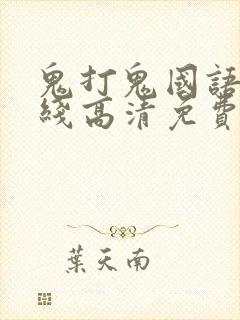 鬼打鬼國語
綫高清免費
葉天南